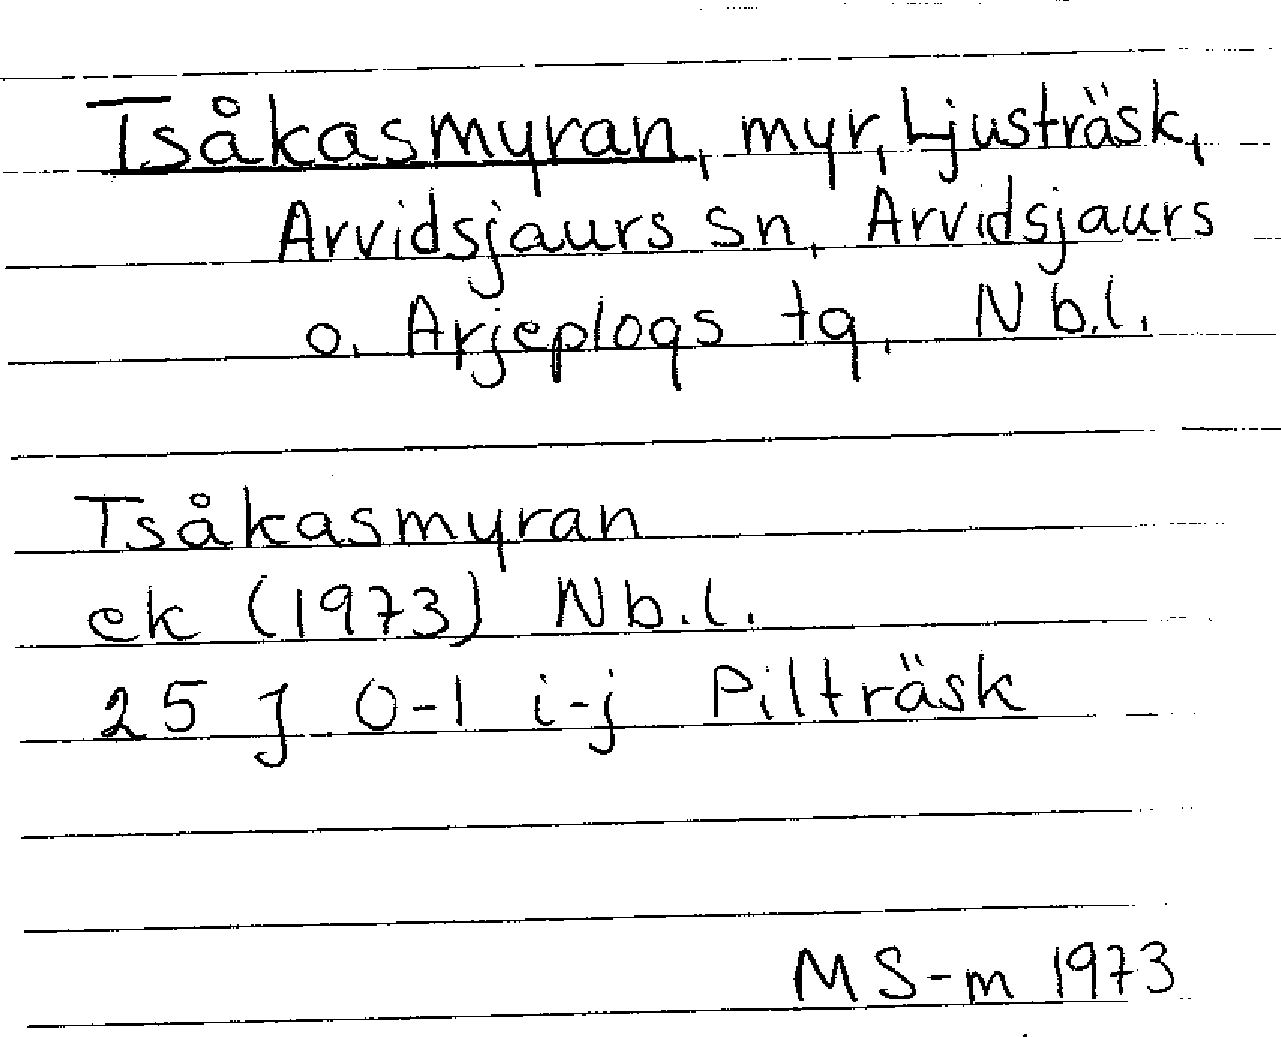 Tsåkasmyran, myr, Ljusträsk,
Arvidsjaurs sn, Arvidsjaurs
o. Arjeplogs tg, Nb.l.
Tsåkasmyran
ek (1973) Nb.l.
25 J 0-1 i-j Pilträsk
MS-m 1973